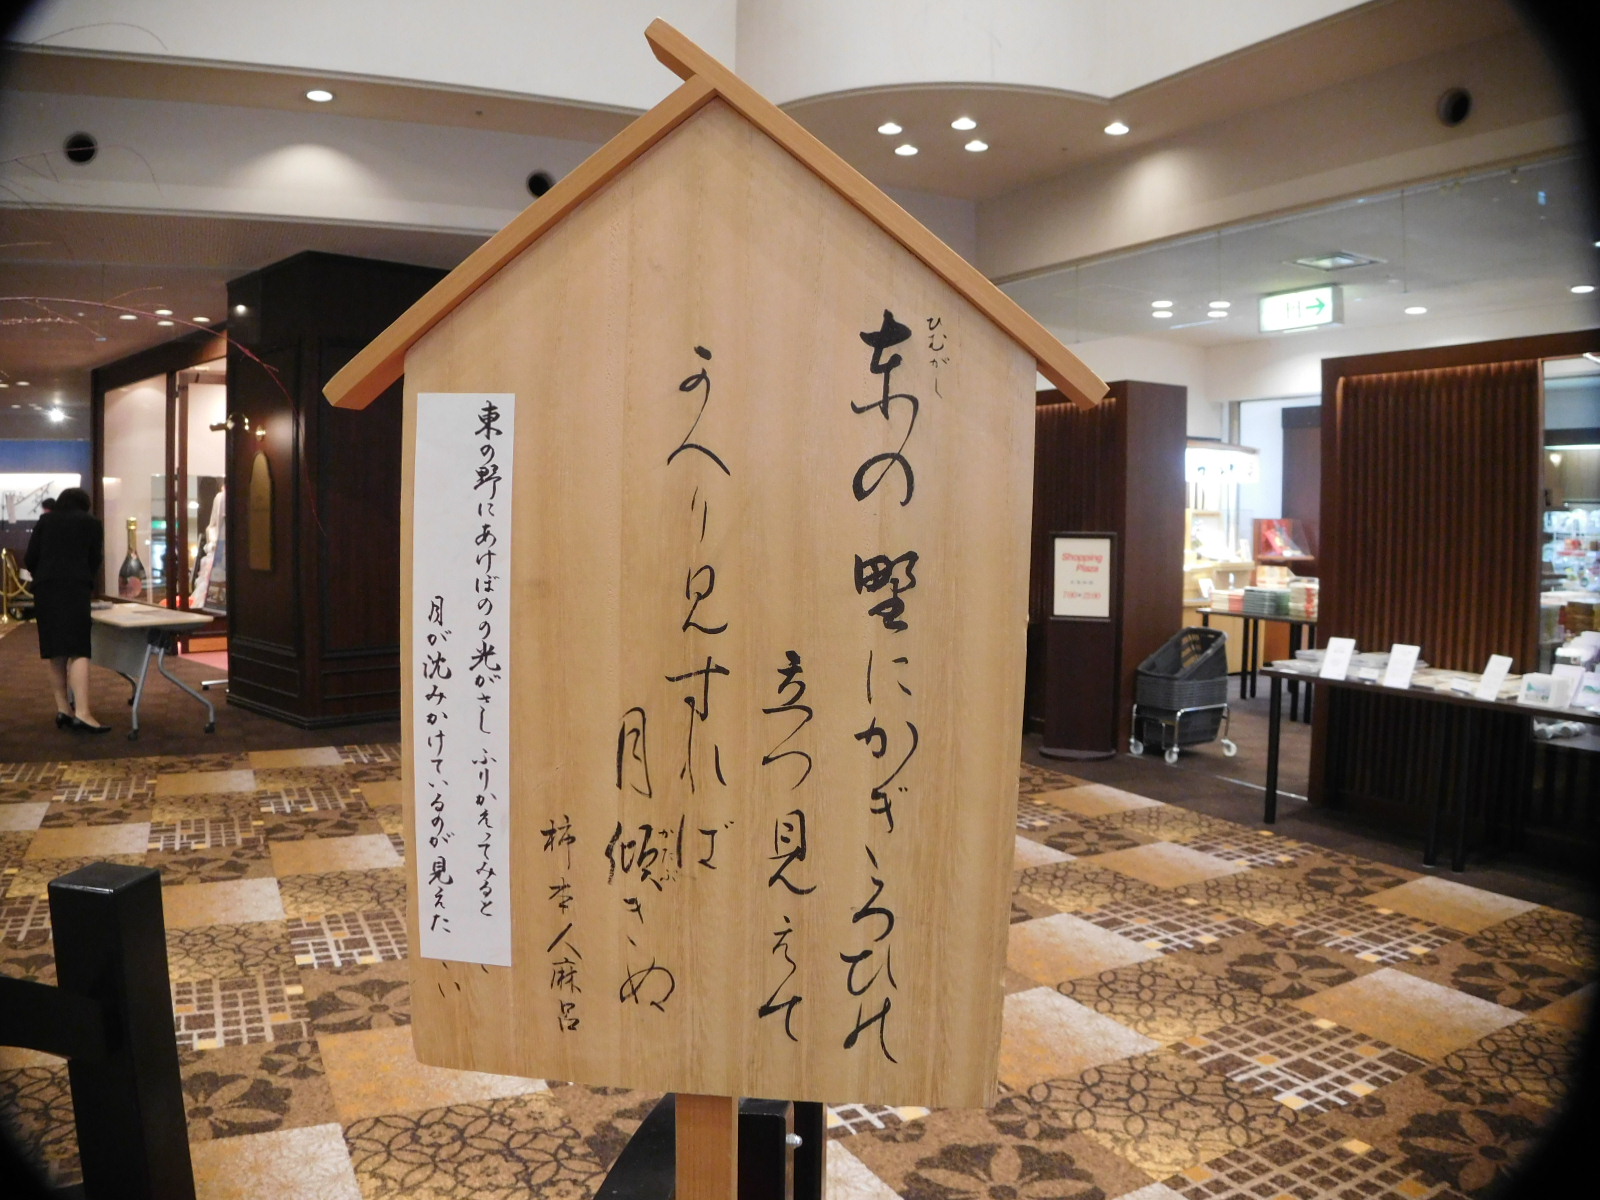 ひむがし
東の野にかぎろひの
立つ見えて
かへり見すれば
かたぶ
月傾きぬ
柿本人麻呂
東の野にあけぼのの光がさし ふりかえってみると
月が沈みかけているのが見えた
Shopping
Plaza